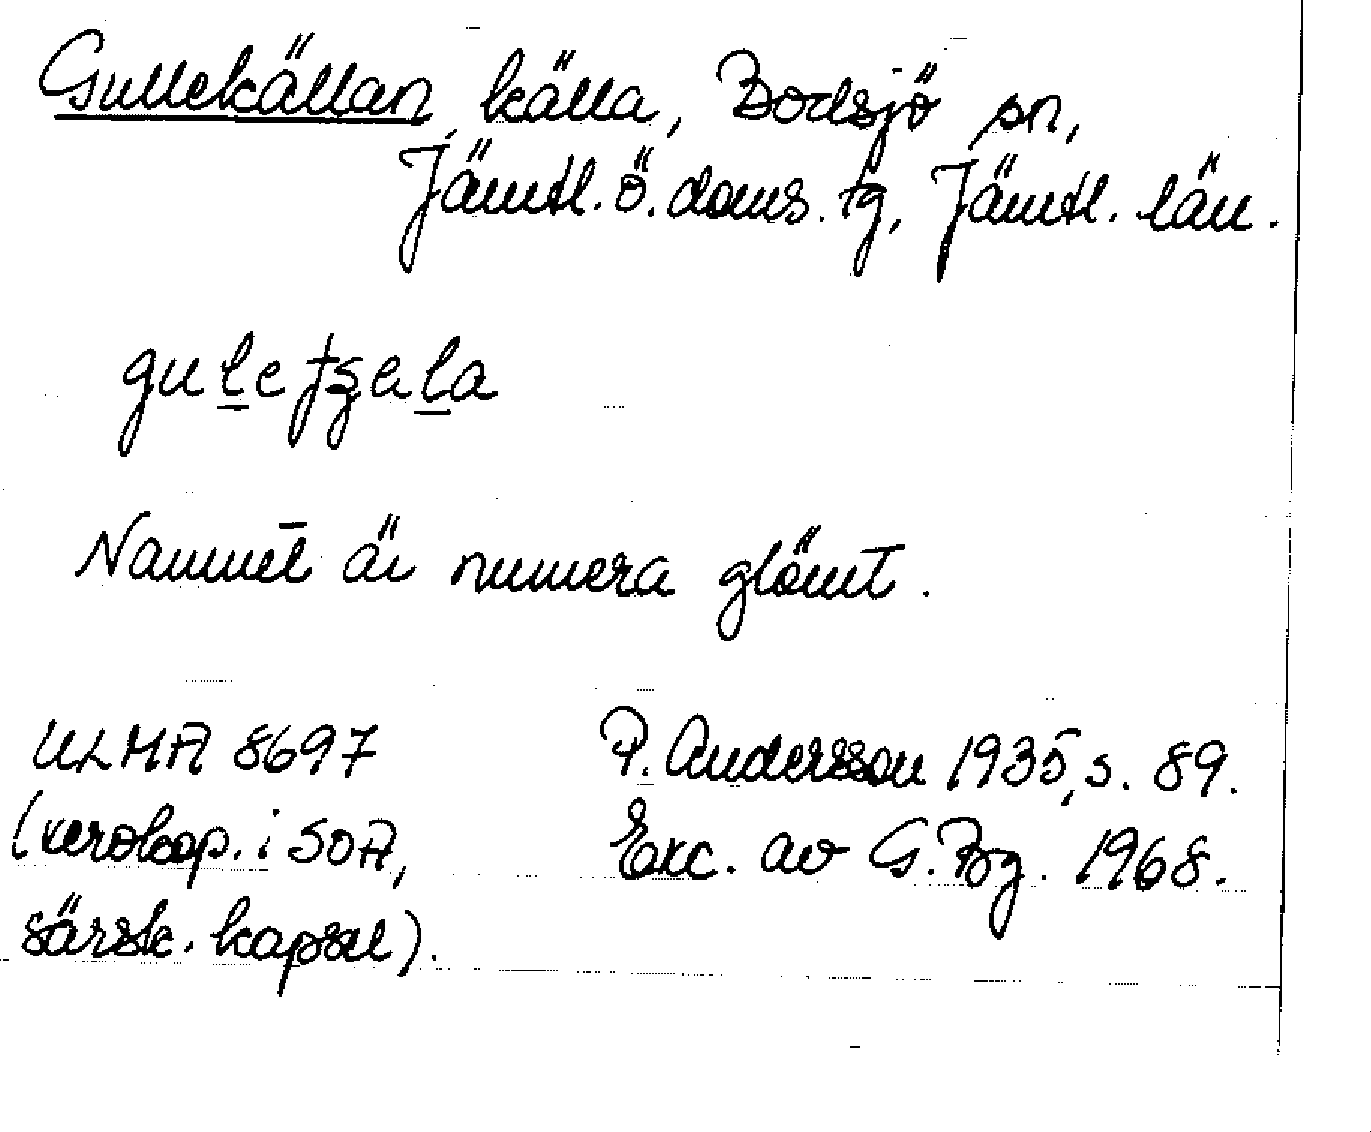 Gullekällan, källa, Bodsjö sn,
Jämtl. ö. doms. tg, Jämtl. län.
Namnet är numera glömt.
ULMA 8697
(xerokop. i SOA,
särsk. kapsel).
P. Andersson 1935, s. 89.
Exc. av G. Bg. 1968.